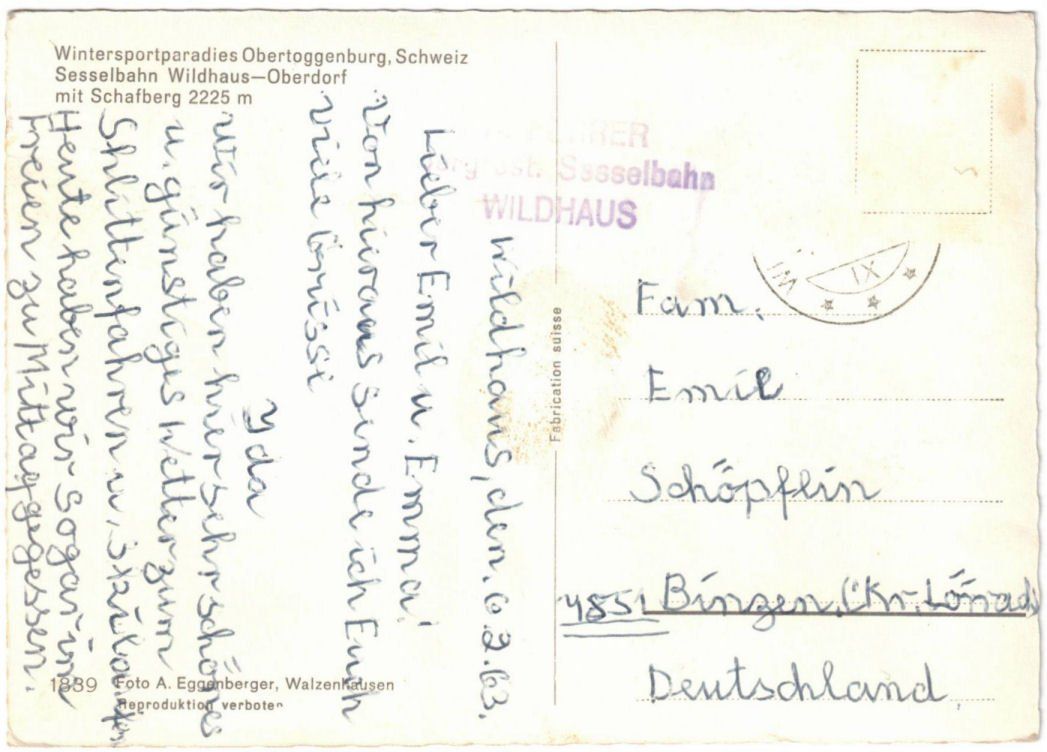 Wintersportparadies Obertoggenburg, Schweiz
Sesselbahn Wildhaus—Oberdorf
mit Schafberg 2225 m
Wildhaus, den. 6.2.63.
Lieber Emil u. Emma!
Von hier aus sende ich Euch
viele Grüssi
Yda
Wir haben hier sehr schönes
u. günstiges Wetter zum
Schlittenfahren u.
Heute haben wir sogar im
Freien zu Mittaggegessen.
1839 Foto A. Eggenberger, Walzenhausen
Reproduktion verboten
Fabrication suisse
Sesselbahn
WILDHAUS
WI
XI
Fam.
Emil
Schöpflin
7851 Binzen, (Kr. Lörrach
Deutschland